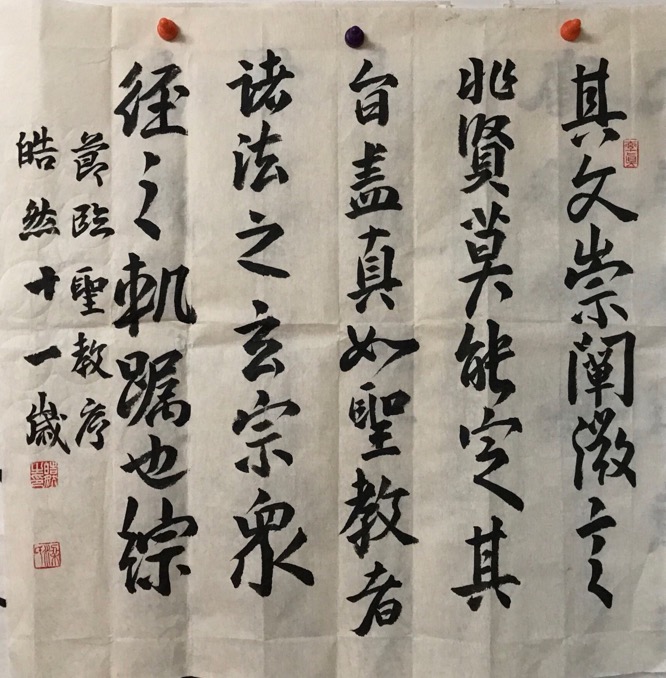 其文崇闡微言
非賢莫能定其
旨盖真如聖教者
諸法之玄宗衆
經之軌躅也綜
節臨聖教序
皓然十一歲